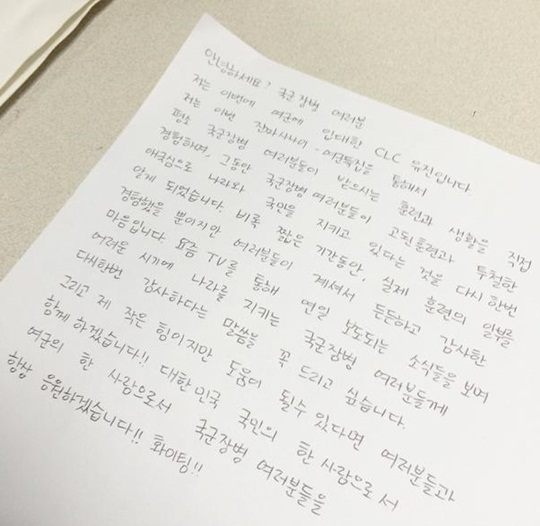 안녕하세요? 국군 장병 여러분
저는 이번에 여군에 입대한 CLC 유진입니다.
저는 이번 진짜사나이 - 여군특집을 통해서
평소 국군장병 여러분들이 받으시는 훈련과 생활을 직접
경험하며, 그동안 국군장병 여러분들이 고된훈련과 투철한
애국심으로 나라와 국민을 지키고 있다는 것을 다시 한번
알게 되었습니다. 비록 짧은 기간동안, 실제 훈련의 일부를
경험했을 뿐이지만 여러분들이 계셔서 든든하고 감사한
마음입니다. 요즘 TV를 통해 연일 보도되는 소식들을 보며
어려운 시기에 나라를 지키는 국군장병 여러분들께
다시한번 감사하다는 말씀을 꼭 드리고 싶습니다.
그리고 제 작은 힘이지만 도움이 될수 있다면 여러분들과
함께 하겠습니다!! 대한민국 국민의 한 사람으로서
여군의 한 사람으로서 국군장병 여러분들을
항상 응원하겠습니다!! 화이팅!!